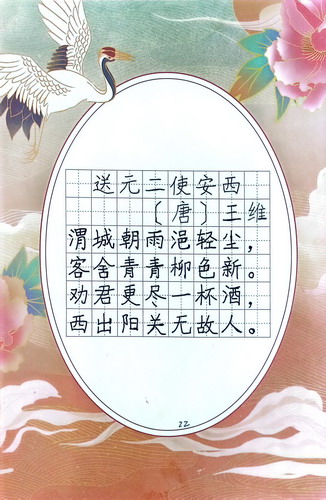 送元二使安西
〔唐〕王维
渭城朝雨浥轻尘，
客舍青青柳色新。
劝君更尽一杯酒，
西出阳关无故人。
22